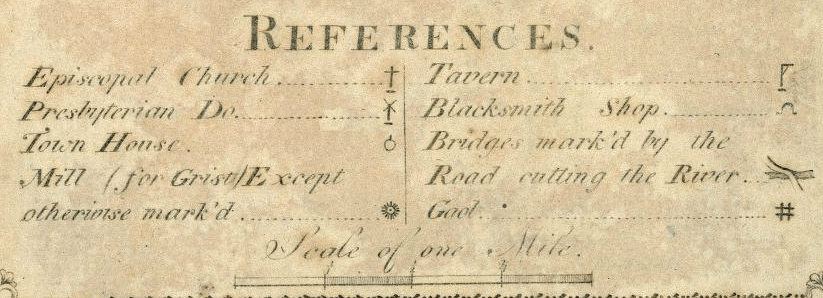 REFERENCES.
Episcopal Church
Presbyterian Do.
Town House.
Mill (for Grist) Except
otherwise mark'd
Tavern
Blacksmith Shop.
Bridges mark'd by the
Road cutting the River.
Gaol.
Scale of one Mile.